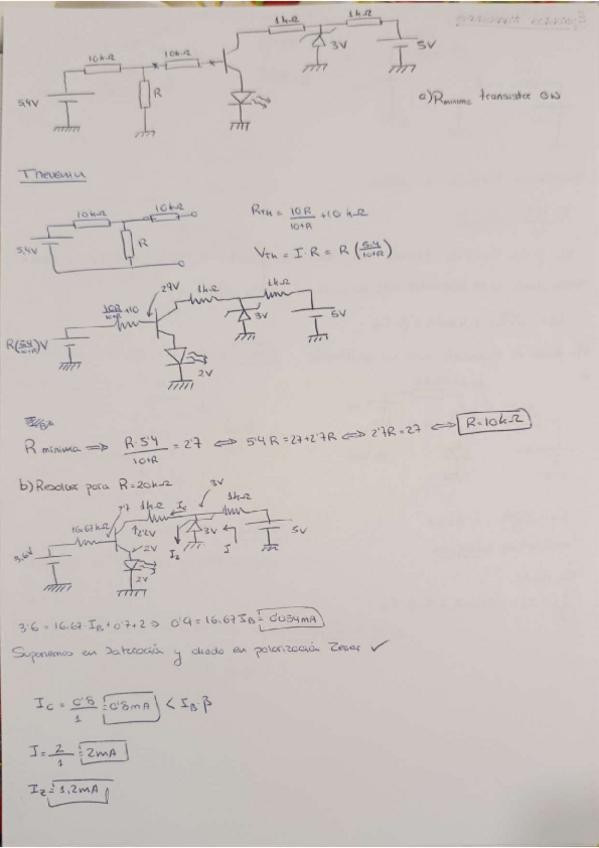 1kΩ 1kΩ
10kΩ 10kΩ
3V 5V
5,4V R
a) Rminima transistor ON
Thevenin
10kΩ 10kΩ
5,4V R
RTH = 10R/10+R + 10 kΩ
VTH = I·R = R (5'4/10+R)
2'7V 1kΩ 1kΩ
10R/10+R +10
3V 5V
R(5'4/10+R)V
2V
R minima ⟹ R·5'4/10+R = 2'7 ⟺ 5'4R = 27+2'7R ⟺ 2'7R = 27 ⟺ R=10kΩ
b) Resolver para R=20kΩ
3V
16.67kΩ 1kΩ Ic 1kΩ
3.6V 2'2V 3V 5V
2V Iz I
2V
3'6 = 16.67·IB + 0'7 + 2 ⇒ 0'9 = 16.67 IB = 0'054mA
Suponemos en saturación y diodo en polarización Zener ✓
Ic = 0'8/1 = 0'8mA < IB·β
I = 2/1 = 2mA
Iz = 1,2mA